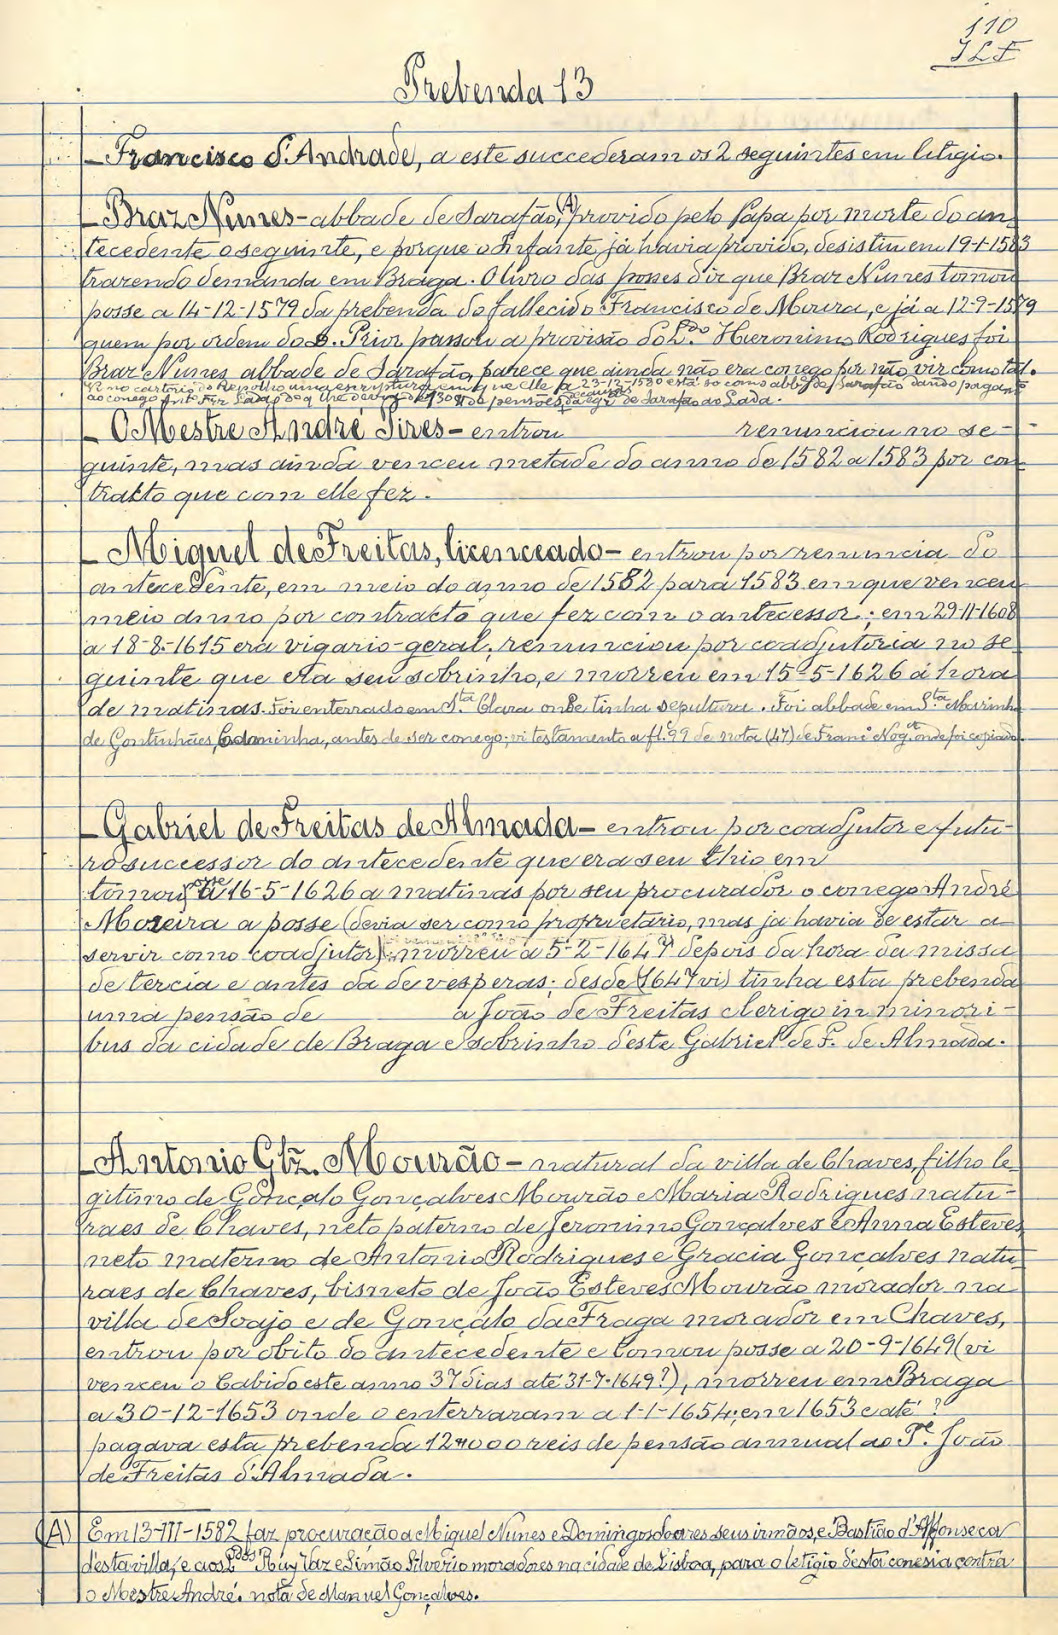 110
JLF
Prebenda 13
– Francisco d'Andrade, a este succederam os 2 seguintes em letigio.
– Braz Nunes – abbade de Sarafão, (A) provido pelo Papa por morte do an
tecedente o seguinte, e porque o Infante já havia provido, desistiu em 19-1-1583
trazendo demanda em Braga. O livro das posses diz que Braz Nunes tomou
posse a 14-12-1579 da prebenda do fallecido Francisco de Moura, e já a 12-9-1579
quem por ordem do D. Prior passou a provisão do L.do Hieronimo Rodrigues foi
Braz Nunes abbade de Sarafão, parece que ainda não era conego por não vir como tal.
Vi no cartorio do Repolho uma escriptura em que elle a 23-12-1580 está só como abb.e de Sarafão dando
ao conego de pensões da egr.ª de Sarafão ao Lada.
– O Mestre André Pires – entrou renunciou no se-
guinte, mas ainda venceu metade do anno de 1582 a 1583 por con
tracto que com elle fez.
– Miguel de Freitas, licenceado – entrou por renuncia do
antecedente, em meio do anno de 1582 para 1583 em que venceu
meio anno por contracto que fez com o antecessor; em 29-11-1608
a 18-8-1615 era vigario-geral; renunciou por coadjutoria no se
guinte que era seu sobrinho, e morreu em 15-5-1626 á hora
de matinas. Foi enterrado em S.ta Clara onde tinha sepultura. Foi abbade em S.ta Marinha
de Gontinhães, Caminha, antes de ser conego; vi testamento a fl. 99 de nota (47) de Fran.co Nog.ra onde foi copiado.
– Gabriel de Freitas de Almada – entrou por coadjutor e futu-
ro successor do antecedente que era seu thio em
tomou a 16-5-1626 a matinas por seu procurador o conego André
Moreira a posse (devia ser como proprietario, mas já havia de estar a
servir como coadjutor); morreu a 5-2-1647 depois da hora da missa
de tercia e antes da de vesperas; desde (1647 vi) tinha esta prebenda
uma pensão de a João de Freitas clerigo in minori-
bus da cidade de Braga e sobrinho d'este Gabriel de F. de Almada.
– Antonio Glz. Mourão – natural da villa de Chaves, filho le
gitimo de Gonçalo Gonçalves Mourão e Maria Rodrigues natu-
raes de Chaves, neto paterno de Jeronimo Gonçalves e Anna Esteves,
neto materno de Antonio Rodrigues e Gracia Gonçalves natu
raes de Chaves, bisneto de João Esteves Mourão morador na
villa de Soajo e de Gonçalo da Fraga morador em Chaves,
entrou por obito do antecedente e tomou posse a 20-9-1649 (vi
venceu o Cabido este anno 37 dias até 31-7-1649?), morreu em Braga
a 30-12-1653 onde o enterraram a 1-1-1654; em 1653 e até ?
pagava esta prebenda 12$000 reis de pensão annual ao P.e João
de Freitas d'Almada.
(A) Em 13-III-1582 faz procuração a Miguel Nunes e Domingos Soares seus irmãos, e Bastião d'Affonseca
d'esta villa, e aos L.dos Ruy Vaz e Simão Silverio moradores na cidade de Lisboa, para o letigio d'esta conesia contra
o Mestre André. nota de Manuel Gonçalves.